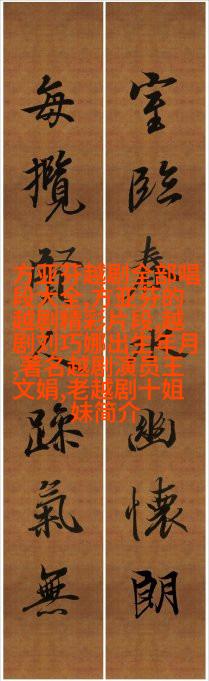 室臨春幽懷朗
每攬賢躁氣無
方亚芬越剧全部唱
段大全,方亚芬的
越剧精彩片段,越
剧刘巧娜出生年月
,著名越剧演员王
文娟,老越剧十姐
妹简介